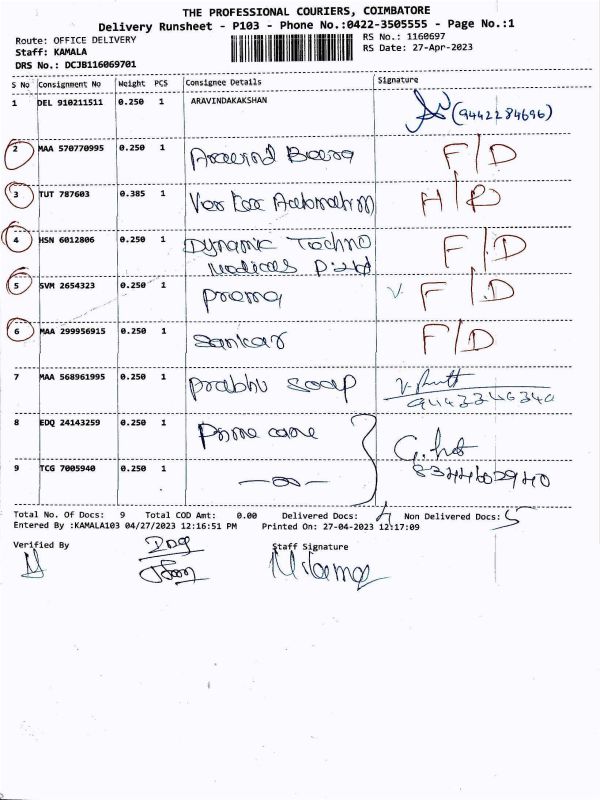 THE PROFESSIONAL COURIERS, COIMBATORE
Delivery Runsheet - P103 - Phone No.:0422-3505555 - Page No.:1
Route: OFFICE DELIVERY
Staff: KAMALA
DRS No.: DCJB116069701
RS No.: 1160697
RS Date: 27-Apr-2023
S No Consignment No Weight PCS Consignee Details Signature
1 DEL 910211511 0.250 1 ARAVINDAKAKSHAN (9442284696)
2 MAA 570770995 0.250 1 F/D
3 TUT 787603 0.385 1 Vortex Automation H/R
4 HSN 6012806 0.250 1 Dynamic Techno F/D
Medicals P. Ltd
5 SVM 2654323 0.250 1 prema F/D
6 MAA 299956915 0.250 1 Sankar F/D
7 MAA 568961995 0.250 1 prabhu soap
8 EDQ 24143259 0.250 1 Prime care
9 TCG 7005940 0.250 1
Total No. Of Docs: 9 Total COD Amt: 0.00 Delivered Docs: 4 Non Delivered Docs: 5
Entered By :KAMALA103 04/27/2023 12:16:51 PM Printed On: 27-04-2023 12:17:09
Verified By
Staff Signature